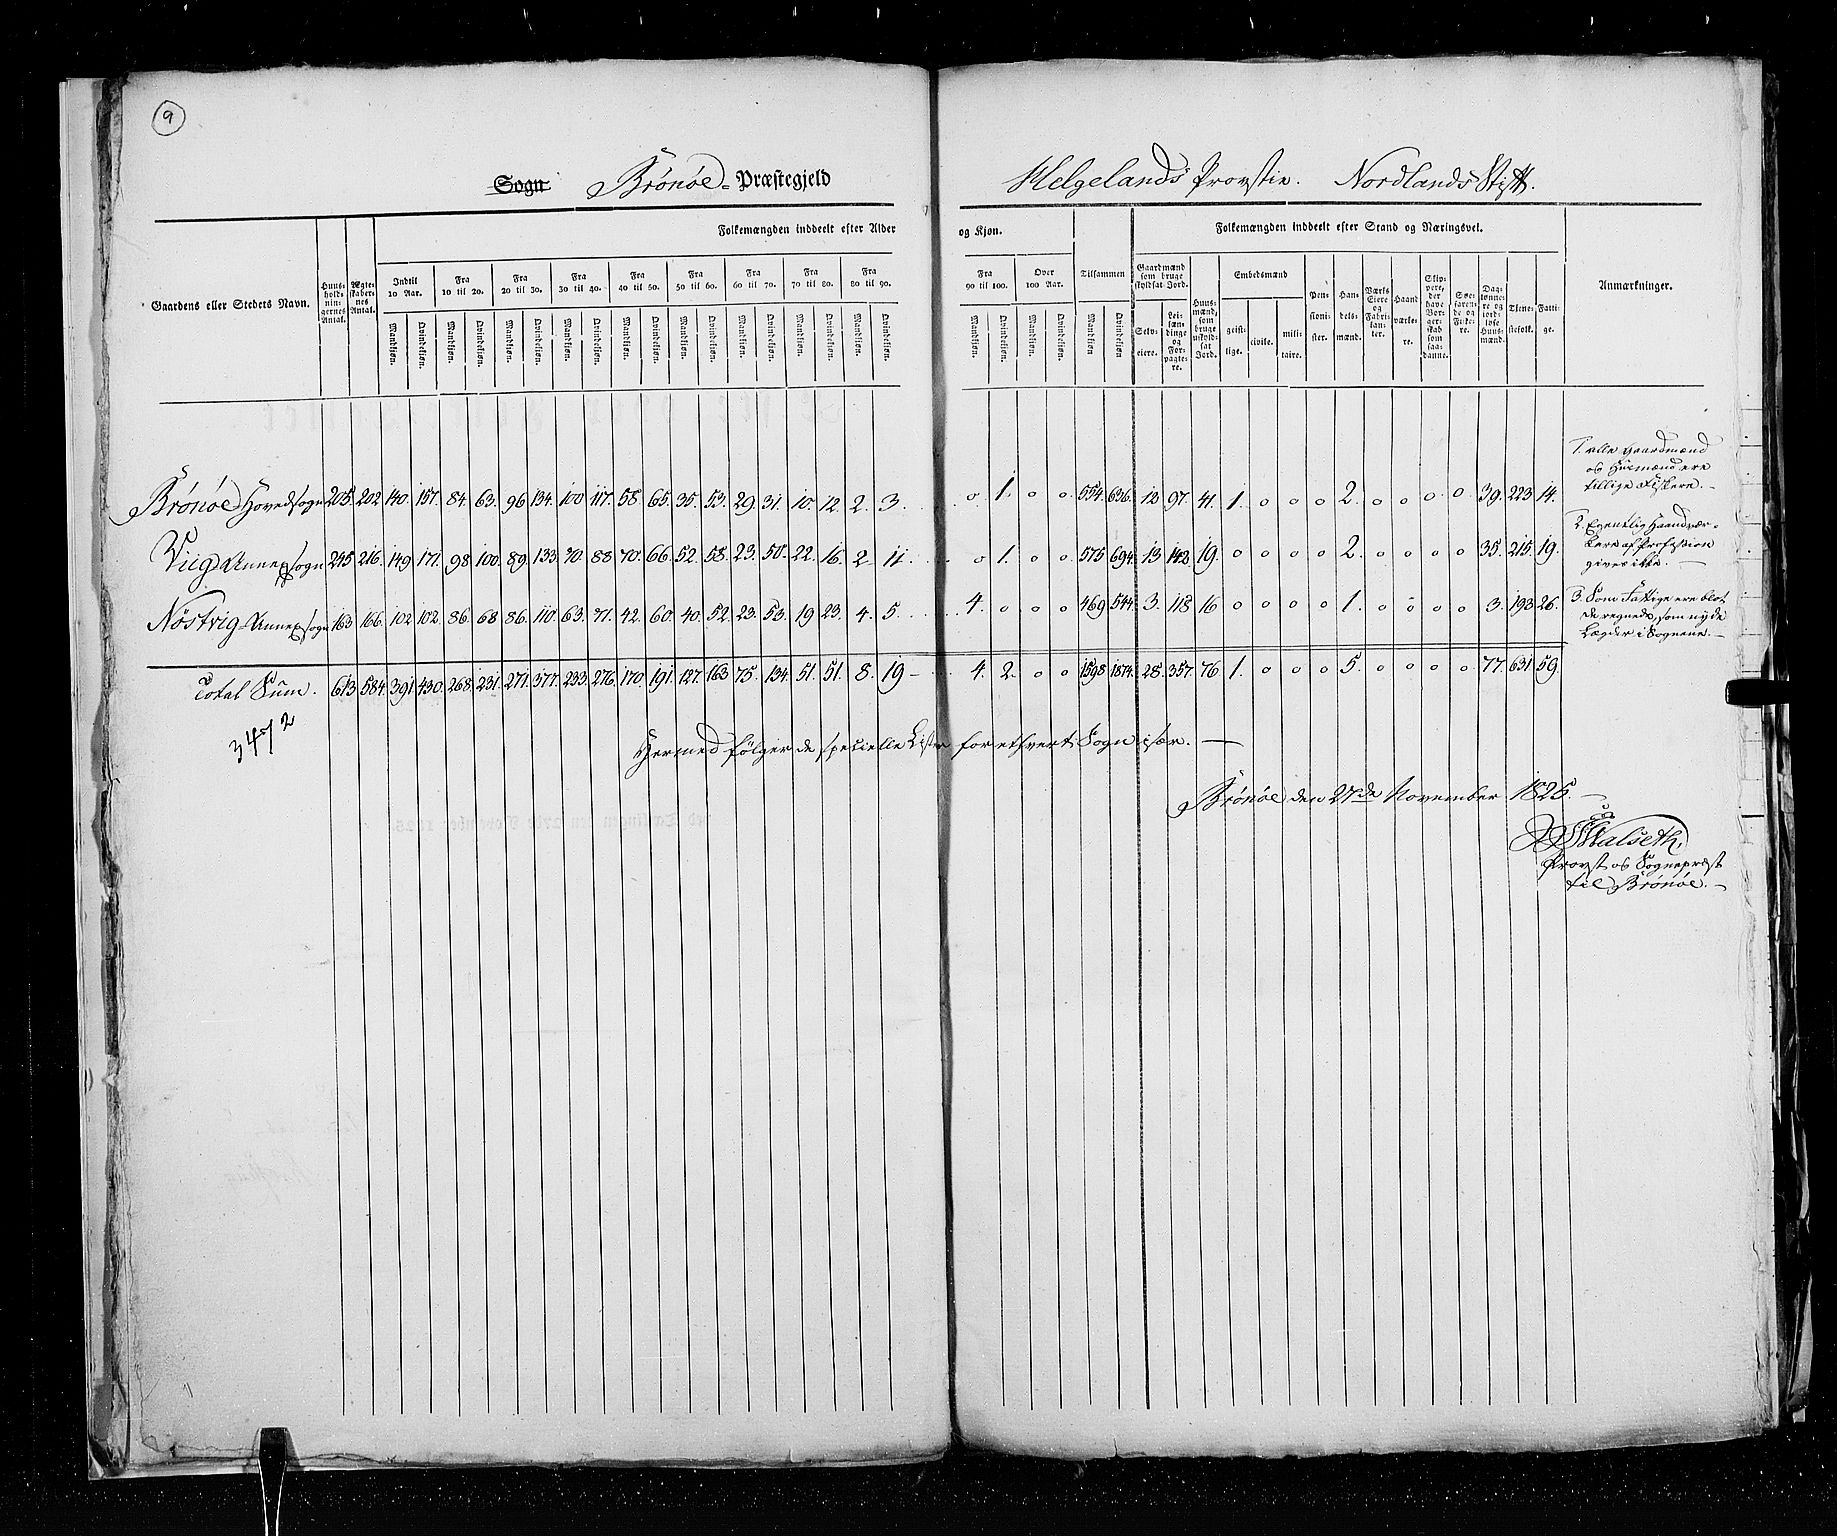 9
Sogn Brönöe-Præstegjeld Helgelands Provstie. Nordlands Stift.
Gaardens eller Stedets Navn. Huusholdningernes Antal. Ægteskabernes Antal. Folkemængden inddeelt efter Alder og Kjøn. Tilsammen Folkemængden inddeelt efter Stand og Næringsvei. Anmærkninger.
Indtil 10 Aar. Fra 10 til 20. Fra 20 til 30. Fra 30 til 40. Fra 40 til 50. Fra 50 til 60. Fra 60 til 70. Fra 70 til 80. Fra 80 til 90. Fra 90 til 100. Over 100 Aar.
Gaardmænd som bruge skyldsat Jord. Selveiere. Leilændinge og Forpagtere. Huusmænd, som bruge uskyldsat Jord. Embedsmænd geistlige. civile. militaire. Pensionister. Handelsmænd. Værks Eiere og Fabrikanter. Haandværkere. Skippere, der have Borgerskab som saadanne. Søefarende og Fiskere. Daglønnere og jordløse Huusmænd. Tjenestefolk. Fattige.
Mandkjøn. Qvindekjøn. Mandkjøn. Qvindekjøn. Mandkjøn. Qvindekjøn. Mandkjøn. Qvindekjøn. Mandkjøn. Qvindekjøn. Mandkjøn. Qvindekjøn. Mandkjøn. Qvindekjøn. Mandkjøn. Qvindekjøn. Mandkjøn. Qvindekjøn. Mandkjøn. Qvindekjøn. Mandkjøn. Qvindekjøn. Mandkjøn Qvindekjøn
Brönöe Hovedsogn 205. 202 140. 157. 84. 63. 96 134. 100 117. 58 65. 35. 53. 29. 31. 10. 12. 2. 3. 0. 1. 0 0 554. 636. 12 97. 41. 1. 0 0 0 2. 0 0 0 0. 39. 223 14.
Viig Annexsogn 245 216. 149 171. 98 100. 89. 133. 70. 88 70. 66. 52. 58. 23. 50. 22. 16. 2. 11. 0 1. 0 0 575 694. 13 142 19. 0 0 0 0 2. 0 0 0 0 35. 215. 19.
Nöstvig-Annexsogn 163 166. 102 102. 86. 68 86. 110. 63. 71. 42. 60. 40. 52. 23. 53. 19 23. 4. 5. 4. 0 0 0 469 544. 3. 118 16 0 0 0 0 1. 0 0 0 0 3. 193 26.
Total Sum. 613 584. 391 430. 268. 231. 271. 377. 233. 276. 170. 191. 127. 163 75. 134. 51. 51. 8. 19 4. 2. 0 0 1598 1874. 28. 357. 76 1. 0 0 0 5. 0 0 0 0 77. 631 59.
1. Alle Gaardmænd
og Huusmænd ere
tillige Fiskere.
2. Egentlig Haandvær-
kere af Profession
gives ikke.
3. Som Fattige ere blot
de regnede, som nyde
Lægder i Sognene.
3472
Hermed fölger de specielle Lister for ethvert Sogn især.
Brönöe den 27de November 1825.
Walseth,
Provst og Sognepræst
til Brönöe.